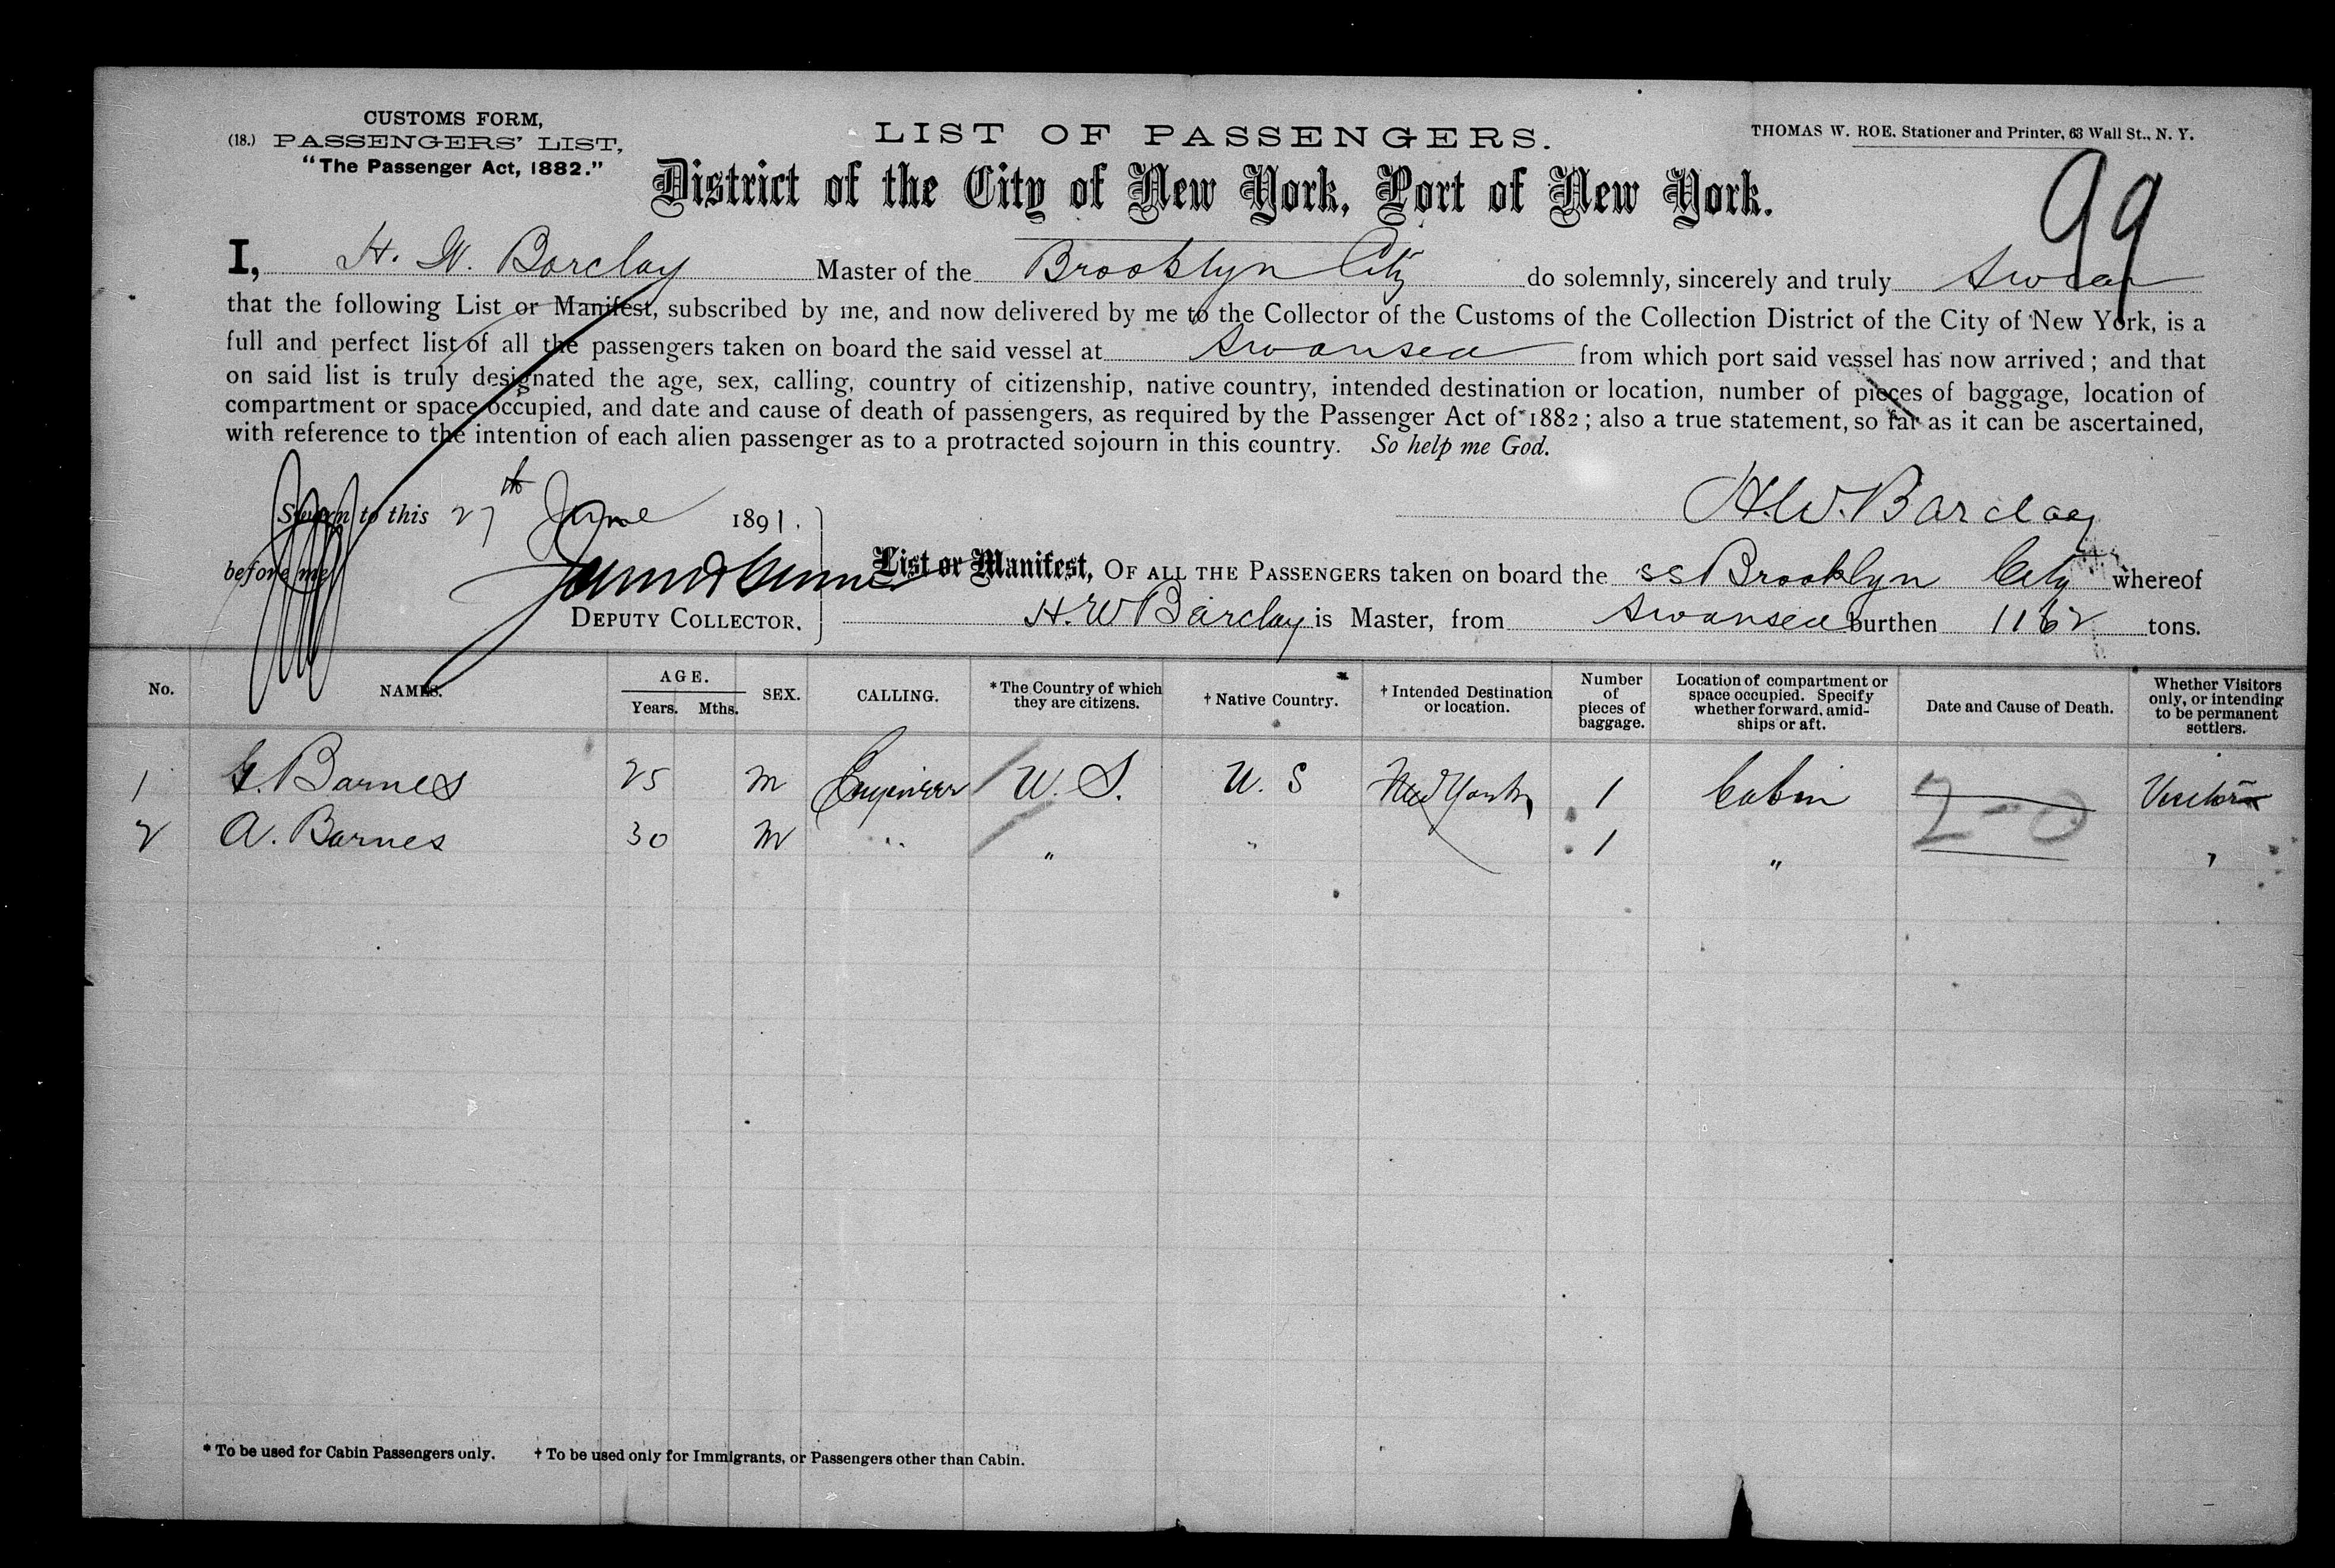 CUSTOMS FORM,
(18.) PASSENGERS' LIST,
"The Passenger Act, 1882."
LIST OF PASSENGERS.
THOMAS W. ROE. Stationer and Printer, 63 Wall St., N. Y.
District of the City of New York, Port of New York.
99
I, H. W. Barclay Master of the Brooklyn City do solemnly, sincerely and truly swear
that the following List or Manifest, subscribed by me, and now delivered by me to the Collector of the Customs of the Collection District of the City of New York, is a
full and perfect list of all the passengers taken on board the said vessel at Swansea from which port said vessel has now arrived; and that
on said list is truly designated the age, sex, calling, country of citizenship, native country, intended destination or location, number of pieces of baggage, location of
compartment or space occupied, and date and cause of death of passengers, as required by the Passenger Act of 1882; also a true statement, so far as it can be ascertained,
with reference to the intention of each alien passenger as to a protracted sojourn in this country. So help me God.
Sworn to this 27th June 1891.
H. W. Barclay
before me
DEPUTY COLLECTOR.
List or Manifest, OF ALL THE PASSENGERS taken on board the SS Brooklyn City whereof
H. W Barclay is Master, from Swansea burthen 1162 tons.
No. NAMES. AGE. Years. Mths. SEX. CALLING. * The Country of which they are citizens. † Native Country. † Intended Destination or location. Number of pieces of baggage. Location of compartment or space occupied. Specify whether forward, amidships or aft. Date and Cause of Death. Whether Visitors only, or intending to be permanent settlers.
1 G. Barnes 25 M Engineer U. S. U. S New York 1 Cabin Visitors
2 A. Barnes 30 M " " " 1 " "
2-0
* To be used for Cabin Passengers only. † To be used only for Immigrants, or Passengers other than Cabin.